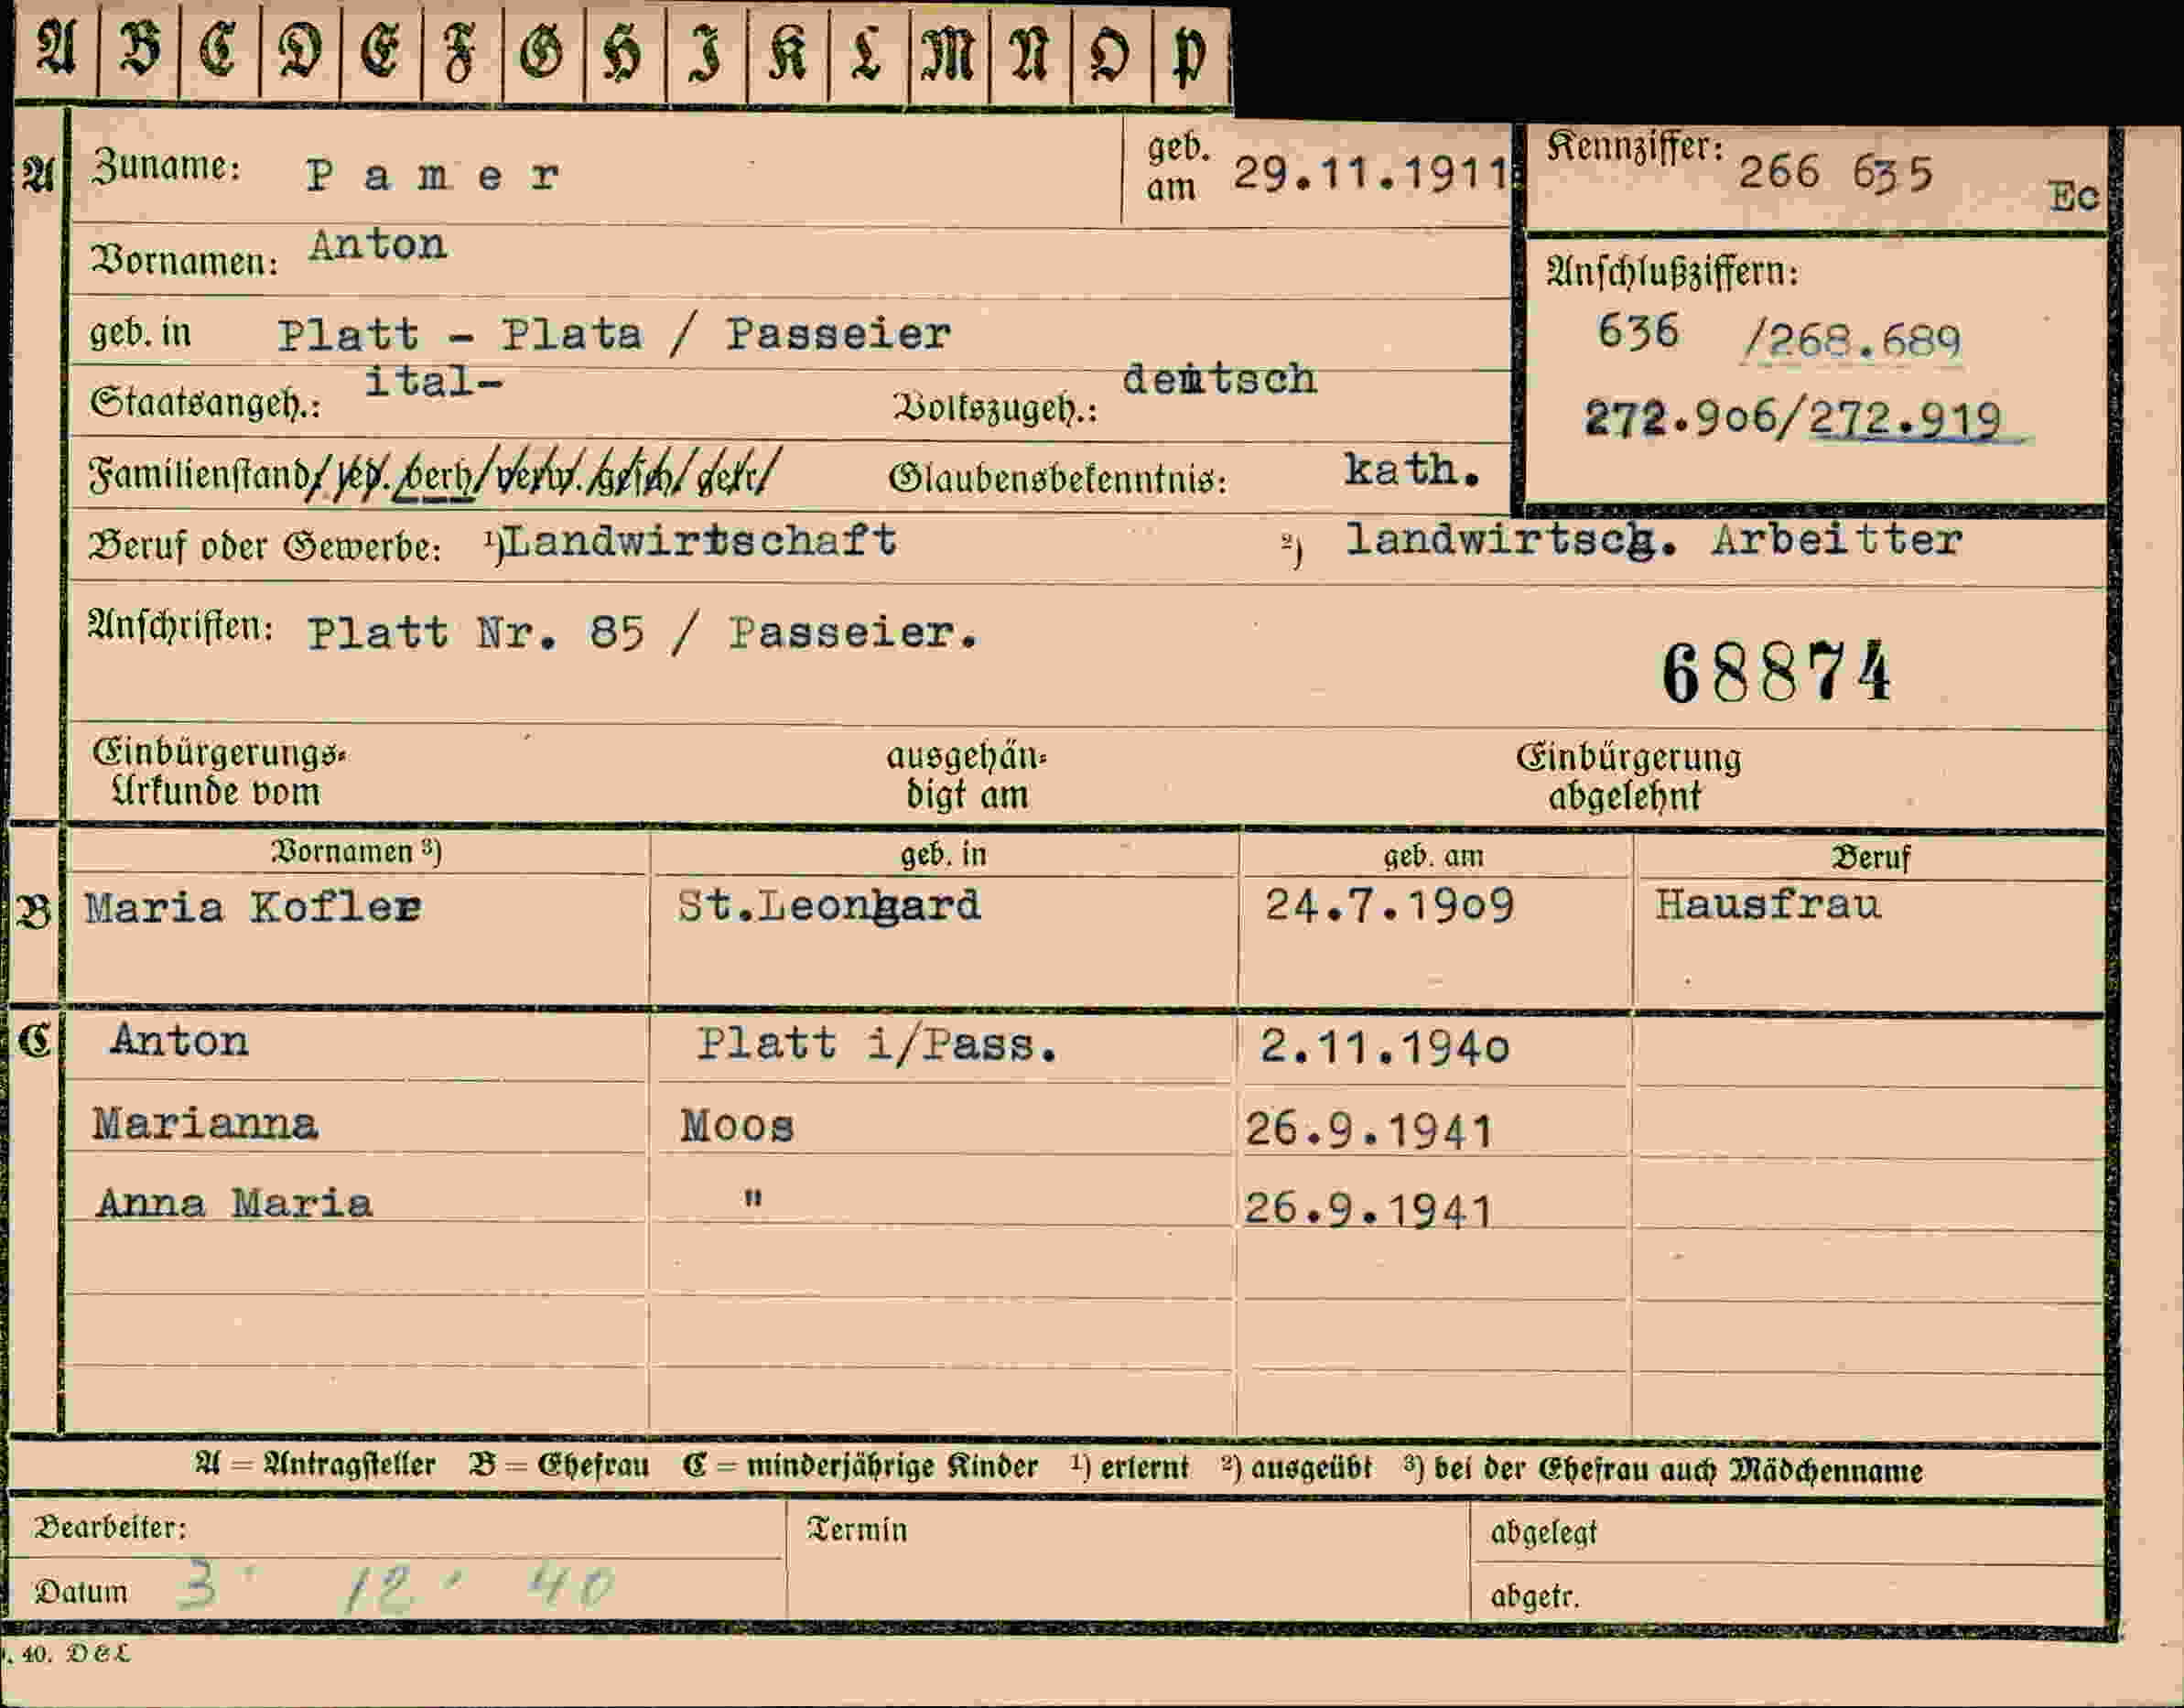 A B C D E F G H I K L M N O P
A Zuname: Pamer geb. am 29.11.1911 Kennziffer: 266 635 Ec
Vornamen: Anton
Anschlußziffern:
geb. in Platt - Plata / Passeier 636 /268.689
Staatsangeh.: ital- Volkszugeh.: deutsch
272.906/272.919
Familienstand/ led. verh/ verw. gesch/ getr/ Glaubensbekenntnis: kath.
Beruf oder Gewerbe: 1) Landwirtschaft 2) landwirtsch. Arbeitter
Anschriften: Platt Nr. 85 / Passeier.
68874
Einbürgerungs- ausgehän- Einbürgerung
Urkunde vom digt am abgelehnt
Vornamen 3) geb. in geb. am Beruf
B Maria Kofler St.Leonhard 24.7.1909 Hausfrau
C Anton Platt i/Pass. 2.11.1940
Marianna Moos 26.9.1941
Anna Maria " 26.9.1941
A = Antragsteller B = Ehefrau C = minderjährige Kinder 1) erlernt 2) ausgeübt 3) bei der Ehefrau auch Mädchenname
Bearbeiter: Termin abgelegt
Datum 3. 12. 40 abgetr.
. 40. D & L